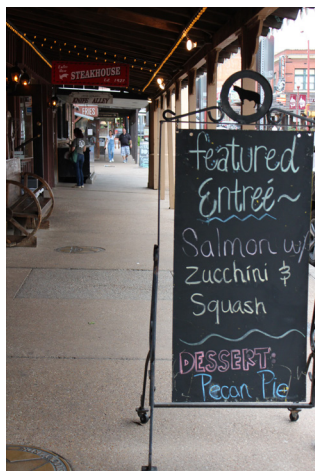 STEAKHOUSE
featured
Entreé~
Salmon w/
Zucchini &
Squash
DESSERT:
Pecan Pie